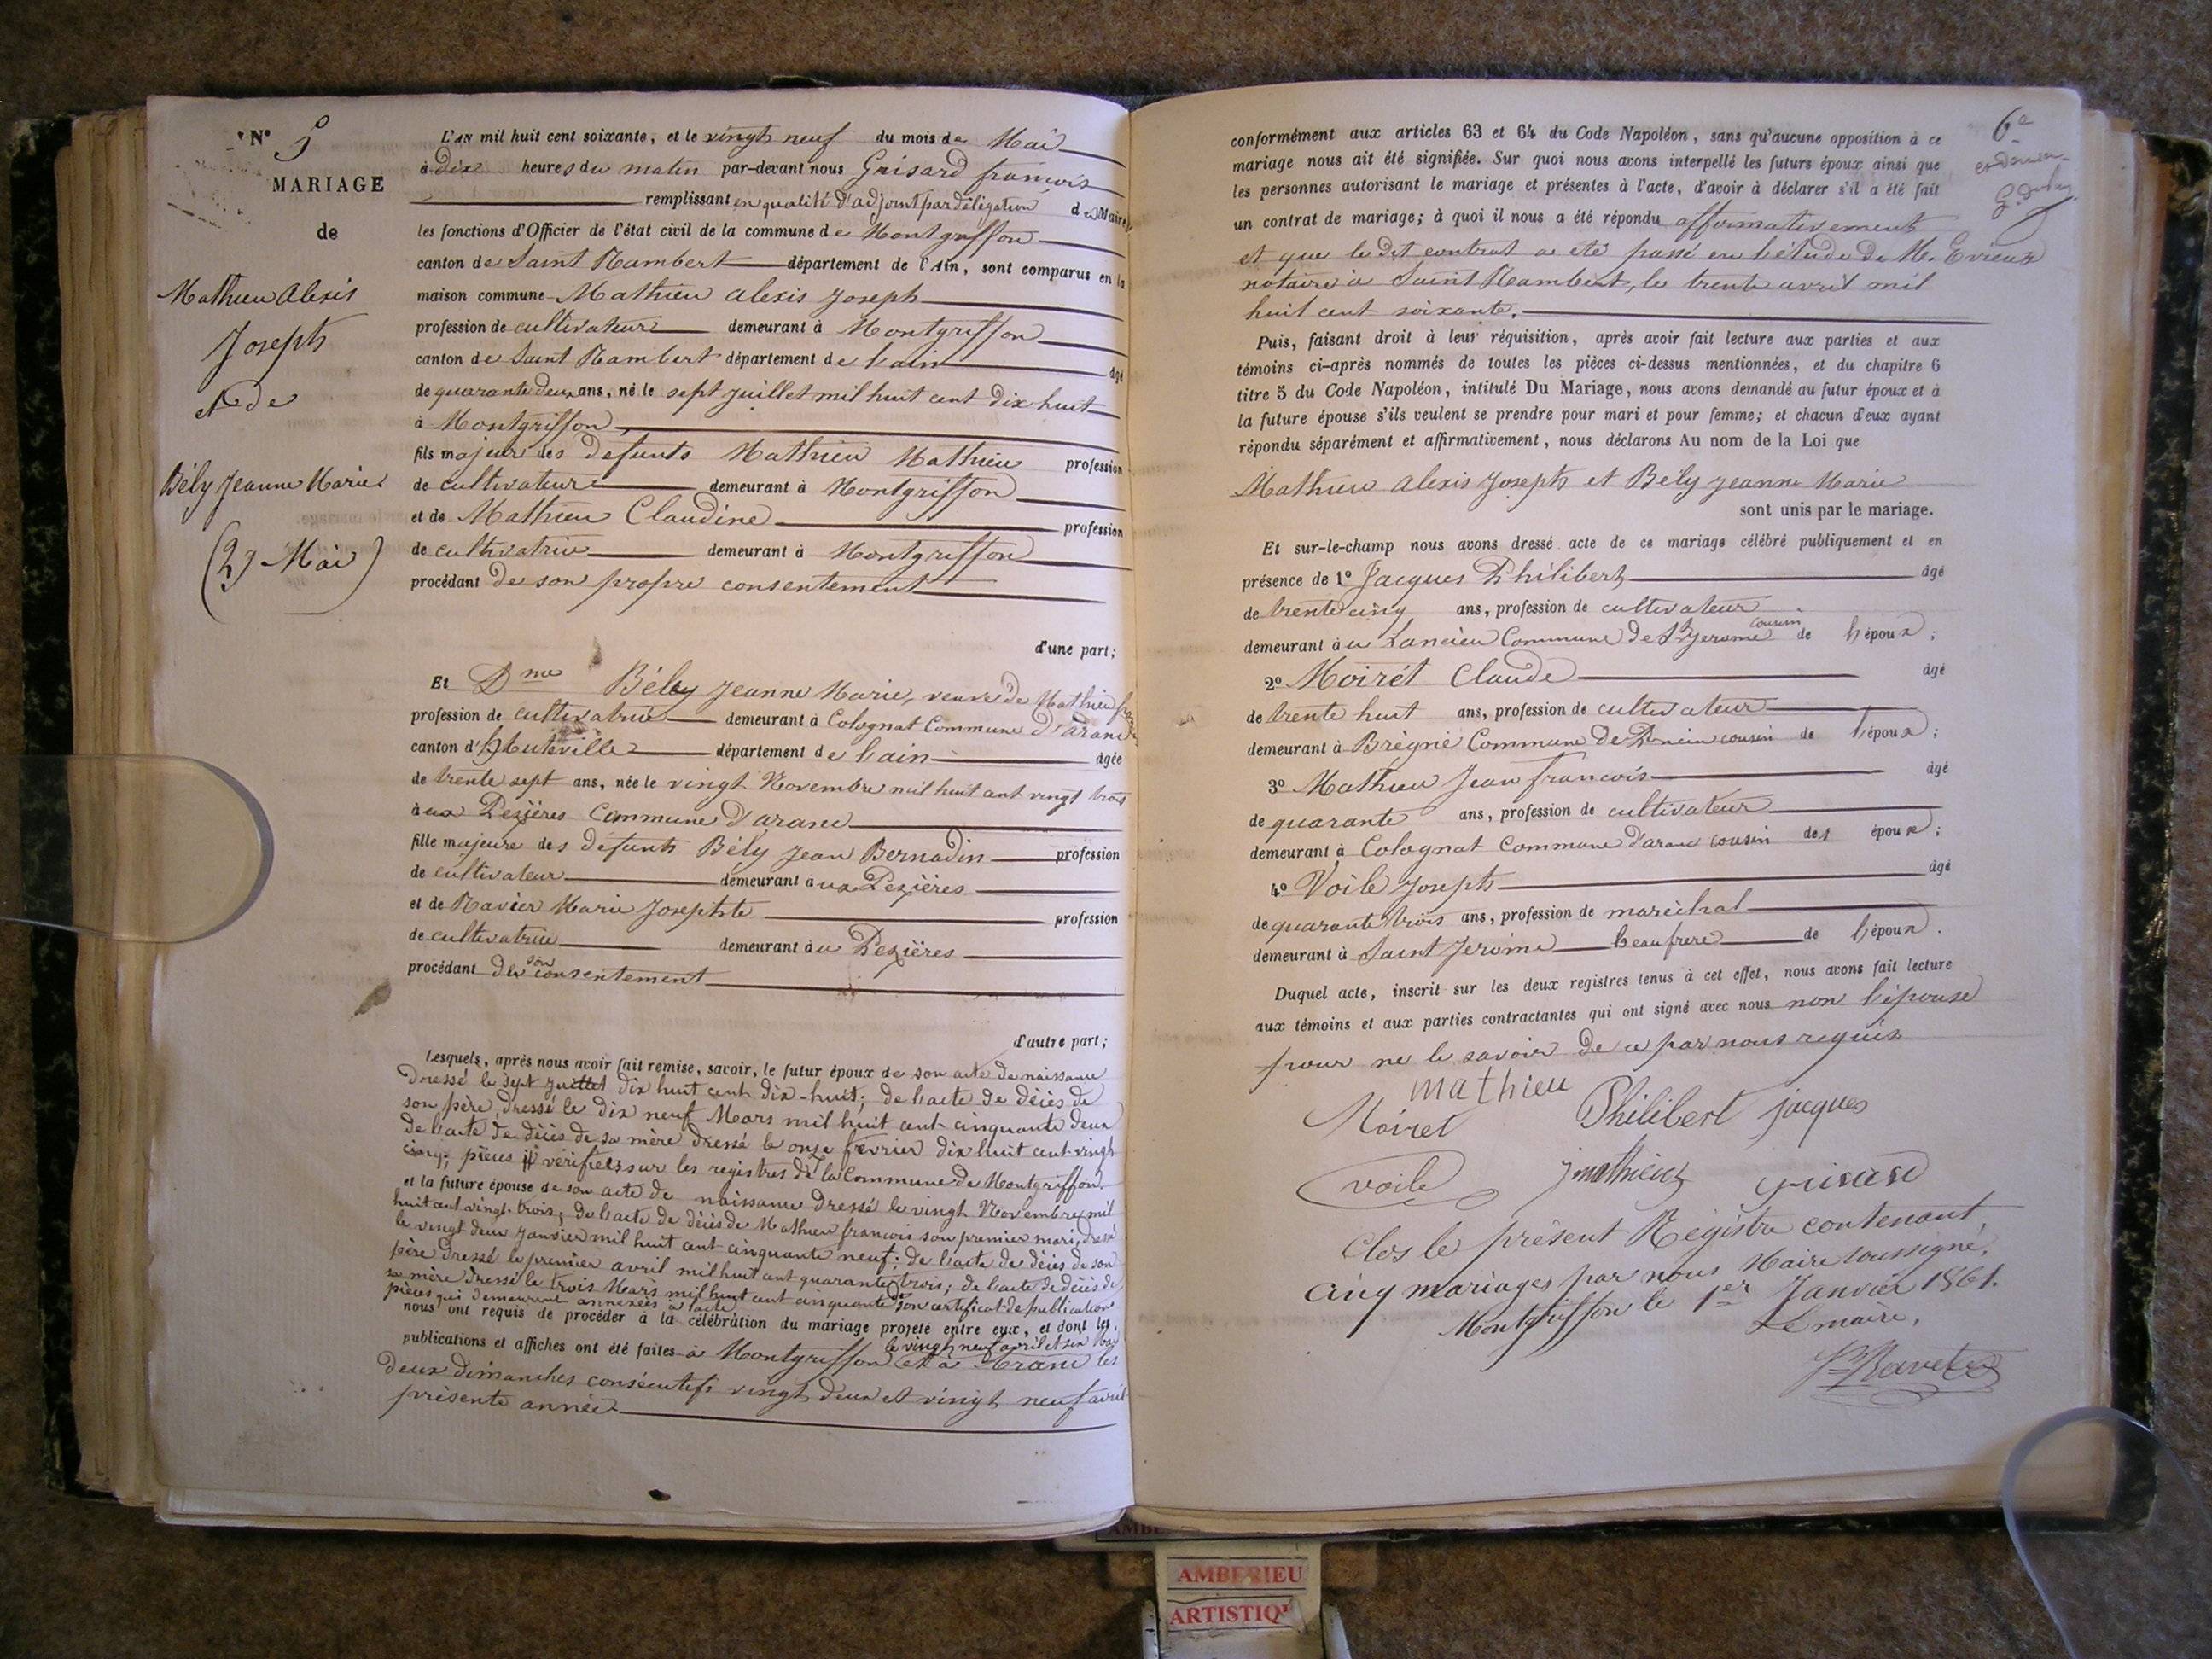 N° 5
MARIAGE
de
Mathieu Alexis
Joseph
et de
Bély Jeanne Marie
(29 Mai)
L'AN mil huit cent soixante, et le vingt neuf du mois de Mai
à dix heures du matin par-devant nous Grisard françois
remplissant en qualité d'adjoint par délégation du Maire
les fonctions d'Officier de l'état civil de la commune de Montgriffon
canton de Saint Rambert département de l'Ain, sont comparus en la
maison commune Mathieu Alexis Joseph
profession de cultivateur demeurant à Montgriffon
canton de Saint Rambert département de l'ain âgé
de quarante deux ans, né le sept juillet mil huit cent dix huit
à Montgriffon
fils majeur des défunts Mathieu Mathieu profession
de cultivateur demeurant à Montgriffon
et de Mathieu Claudine profession
de cultivatrice demeurant à Montgriffon
procédant de son propre consentement
d'une part;
Et Dme Bély Jeanne Marie, veuve de Mathieu
profession de cultivatrice demeurant à Colognat Commune d'aranc
canton d'hauteville département de l'ain âgée
de trente sept ans, née le vingt Novembre mil huit cent vingt trois
à ux Pezières Commune d'aranc
fille majeure des défunts Bély Jean Bernadin profession
de cultivateur demeurant à ux Pezières
et de Ravier Marie Josephte profession
de cultivatrice demeurant à u Pezières
procédant de son consentement
d'autre part;
Lesquels, après nous avoir fait remise, savoir, le futur époux de son acte de naissance
dressé le sept juillet dix huit cent dix-huit; de l'acte de décès de
son père, dressé le dix neuf Mars mil huit cent cinquante deux
de l'acte de décès de sa mère dressé le onze février dix huit cent vingt
cinq; pièces vérifiées sur les registres de la Commune de Montgriffon
et la future épouse de son acte de naissance dressé le vingt Novembre mil
huit cent vingt-trois; de l'acte de décès de Mathieu francois son premier mari, dressé
le vingt deux Janvier mil huit cent cinquante neuf; de l'acte de décès de son
père dressé le premier avril mil huit cent quarante trois; de l'acte de décès de
sa mère dressé le trois Mars mil huit cent cinquante de son certificat de publication
pièces qui demeurent annexées à l'acte
nous ont requis de procéder à la célébration du mariage projeté entre eux, et dont les
publications et affiches ont été faites à Montgriffon le vingt neuf avril et six Mai et à Aranc les
deux dimanches consécutifs vingt deux et vingt neuf avril
présente année
6e
et dernier
conformément aux articles 63 et 64 du Code Napoléon, sans qu'aucune opposition à ce
mariage nous ait été signifiée. Sur quoi nous avons interpellé les futurs époux ainsi que
les personnes autorisant le mariage et présentes à l'acte, d'avoir à déclarer s'il a été fait
un contrat de mariage; à quoi il nous a été répondu affirmativement
et que le dit contrat a été passé en l'étude de Me. Evieux
notaire à Saint Rambert, le trente avril mil
huit cent soixante.
Puis, faisant droit à leur réquisition, après avoir fait lecture aux parties et aux
témoins ci-après nommés de toutes les pièces ci-dessus mentionnées, et du chapitre 6
titre 5 du Code Napoléon, intitulé Du Mariage, nous avons demandé au futur époux et à
la future épouse s'ils veulent se prendre pour mari et pour femme; et chacun d'eux ayant
répondu séparément et affirmativement, nous déclarons Au nom de la Loi que
Mathieu Alexis Joseph et Bély Jeanne Marie
sont unis par le mariage.
Et sur-le-champ nous avons dressé acte de ce mariage célébré publiquement et en
présence de 1° Jacques Philibert âgé
de trente cinq ans, profession de cultivateur
demeurant à u Lancieu Commune de St Jerome cousin de l'époux;
2° Moirét Claude âgé
de trente huit ans, profession de cultivateur
demeurant à Brégne Commune de Poncin cousin de l'époux;
3° Mathieu Jean francois âgé
de quarante ans, profession de cultivateur
demeurant à Colognat Commune d'aranc cousin des époux;
4° Voile Joseph âgé
de quarante trois ans, profession de maréchal
demeurant à Saint Jerôme beaufrere de l'époux.
Duquel acte, inscrit sur les deux registres tenus à cet effet, nous avons fait lecture
aux témoins et aux parties contractantes qui ont signé avec nous non l'épouse
pour ne le savoir de ce par nous requis
mathieu
Moiret Philibert jacques
voile jmathieu grisard
Clos le présent Régistre contenant,
cinq mariages par nous Maire soussigné.
Montgriffon le 1er Janvier 1861.
Le maire,
AMBERIEU
ARTISTIQ